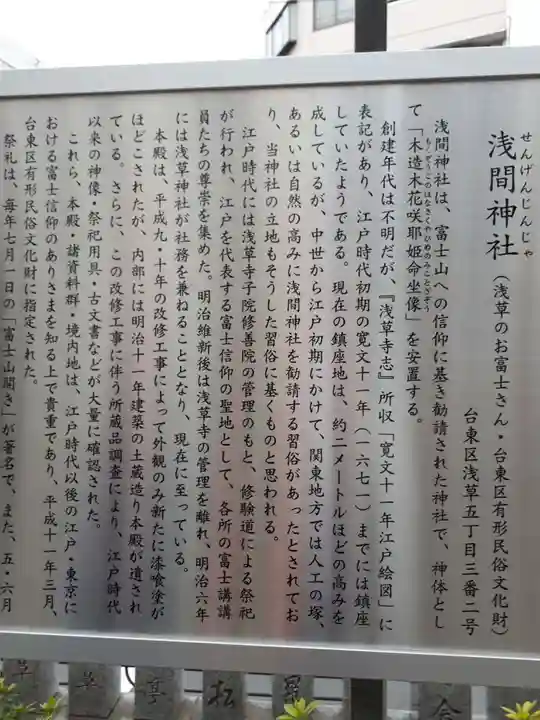 せんげんじんじゃ
浅間神社（浅草のお富士さん・台東区有形民俗文化財）
台東区浅草五丁目三番二号
浅間神社は、富士山への信仰に基き勧請された神社で、神体とし
もくぞうこのはなさくやひめのみことざぞう
て「木造木花咲耶姫命坐像」を安置する。
創建年代は不明だが、『浅草寺志』所収「寛文十一年江戸絵図」に
表記があり、江戸時代初期の寛文十一年（一六七一）までには鎮座
していたようである。現在の鎮座地は、約二メートルほどの高みを
成しているが、中世から江戸初期にかけて、関東地方では人工の塚
あるいは自然の高みに浅間神社を勧請する習俗があったとされてお
り、当神社の立地もそうした習俗に基くものと思われる。
江戸時代には浅草寺子院修善院の管理のもと、修験道による祭祀
が行われ、江戸を代表する富士信仰の聖地として、各所の富士講講
員たちの尊崇を集めた。明治維新後は浅草寺の管理を離れ、明治六年
には浅草神社が社務を兼ねることとなり、現在に至っている。
本殿は、平成九・十年の改修工事によって外観のみ新たに漆喰塗が
ほどこされたが、内部には明治十一年建築の土蔵造り本殿が遺され
ている。さらに、この改修工事に伴う所蔵品調査により、江戸時代
以来の神像・祭祀用具・古文書などが大量に確認された。
これら、本殿・諸資料群・境内地は、江戸時代以後の江戸・東京に
おける富士信仰のありさまを知る上で貴重であり、平成十一年三月、
台東区有形民俗文化財に指定された。
祭礼は、毎年七月一日の「富士山開き」が著名で、また、五・六月
草
草
亭
松